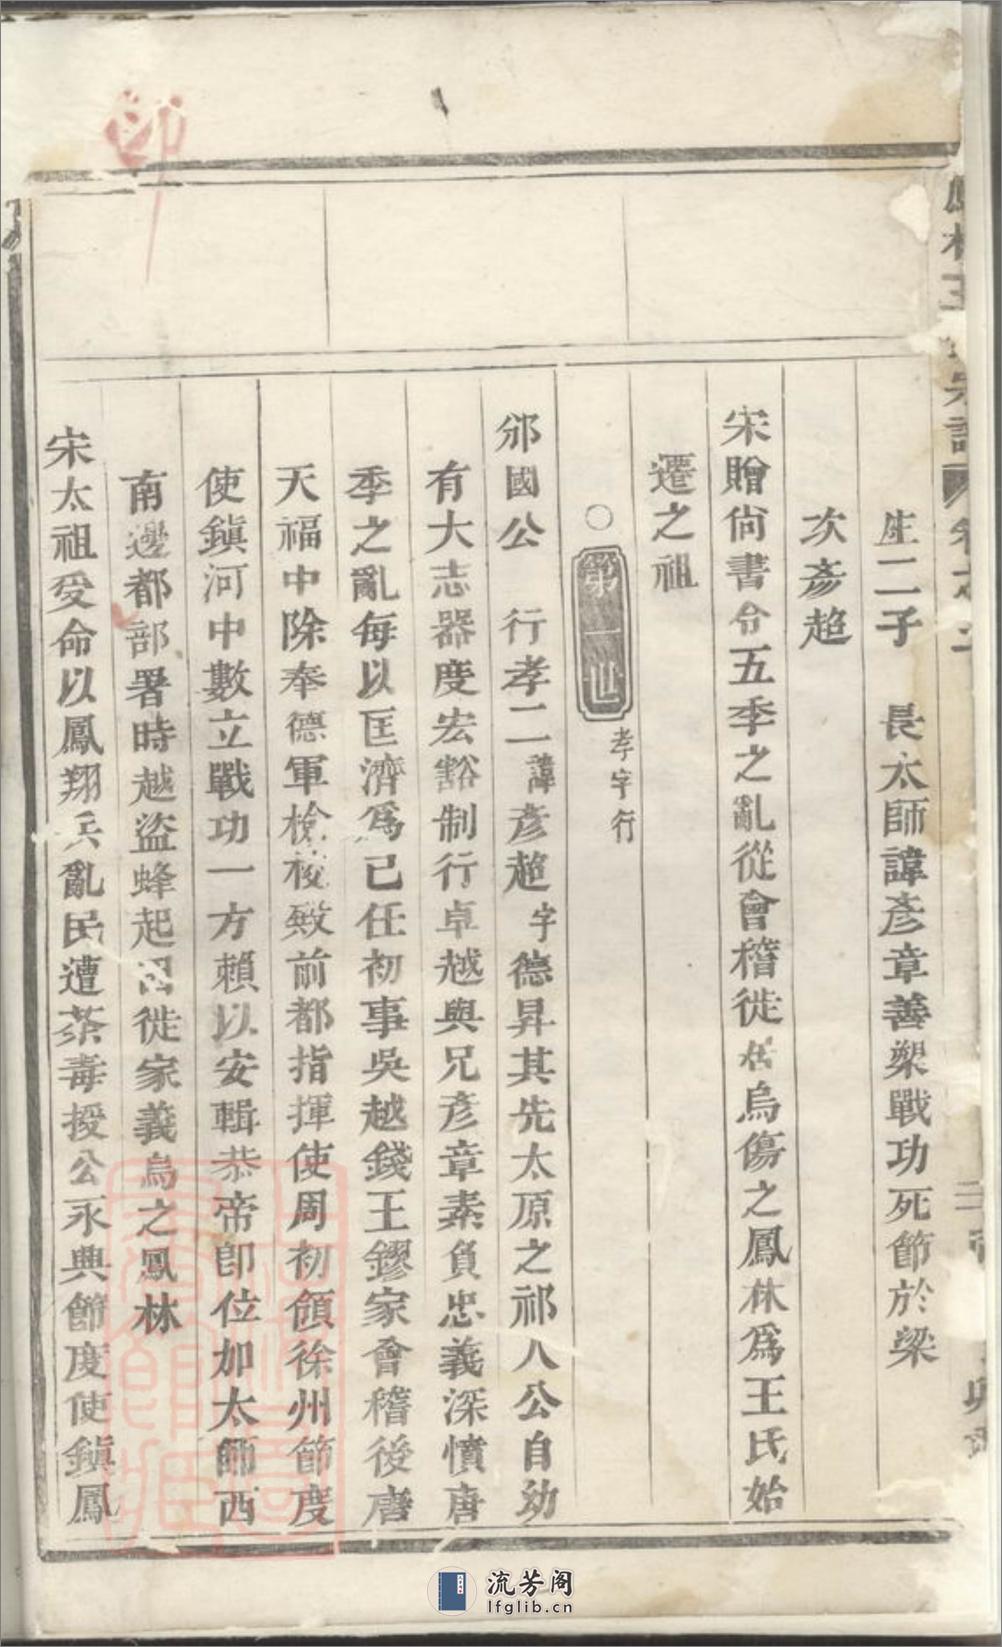 生二子　長太師諱彥章善槊戰功死節於梁
次彥超
宋贈尙書令五季之亂從會稽徙居烏傷之鳳林爲王氏始
遷之祖
○第一世 孝字行
邠國公　行孝二諱彥超字德昇其先太原之祁人公自幼
有大志器度宏豁制行卓越與兄彥章素負忠義深憤唐
季之亂每以匡濟爲己任初事吳越錢王鏐家會稽後唐
天福中除奉德軍檢校殿前都指揮使周初領徐州節度
使鎭河中數立戰功一方賴以安輯恭帝卽位加太師西
南邊都部署時越盜蜂起因徙家義烏之鳳林
宋太祖受命以鳳翔兵亂民遭荼毒授公永興節度使鎭鳳
流芳阁
lfglib.cn